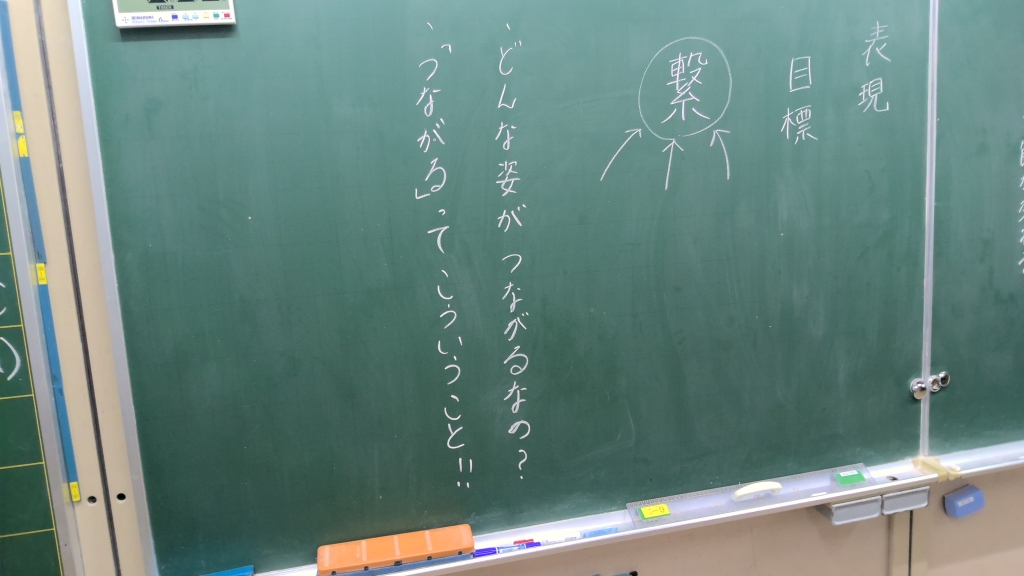 表現
目標
繋
、どんな姿が つながるなの?
、「つながる」って こういうこと!!